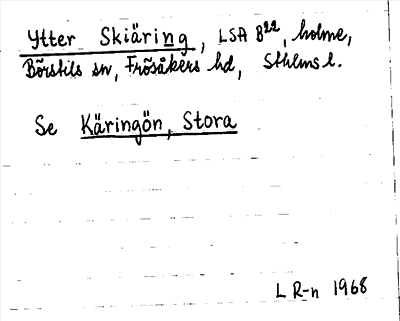 Ytter Skiäring, LSA B²², holme,
Börstils sn, Frösåkers hd, Sthlms l.
Se Käringön, Stora
L R-n 1968